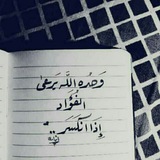 وَحْدهُ اللّه يَرعىٰ
الفُؤَاد
إِذَا انكَسَر ..